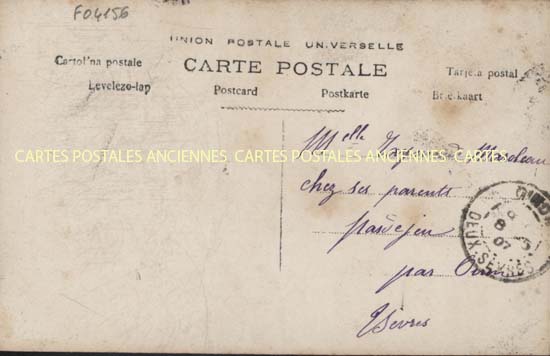 F04156
UNION POSTALE UNIVERSELLE
CARTE POSTALE
Cartolina postale
Tarjeta postal
Levelezo-lap
Postcard
Postkarte
Briefkaart
CARTES POSTALES ANCIENNES CARTES POSTALES ANCIENNES CARTES
Melle
chez ses parents
par
2 Sèvres
DEUX-SEVRES
8
07